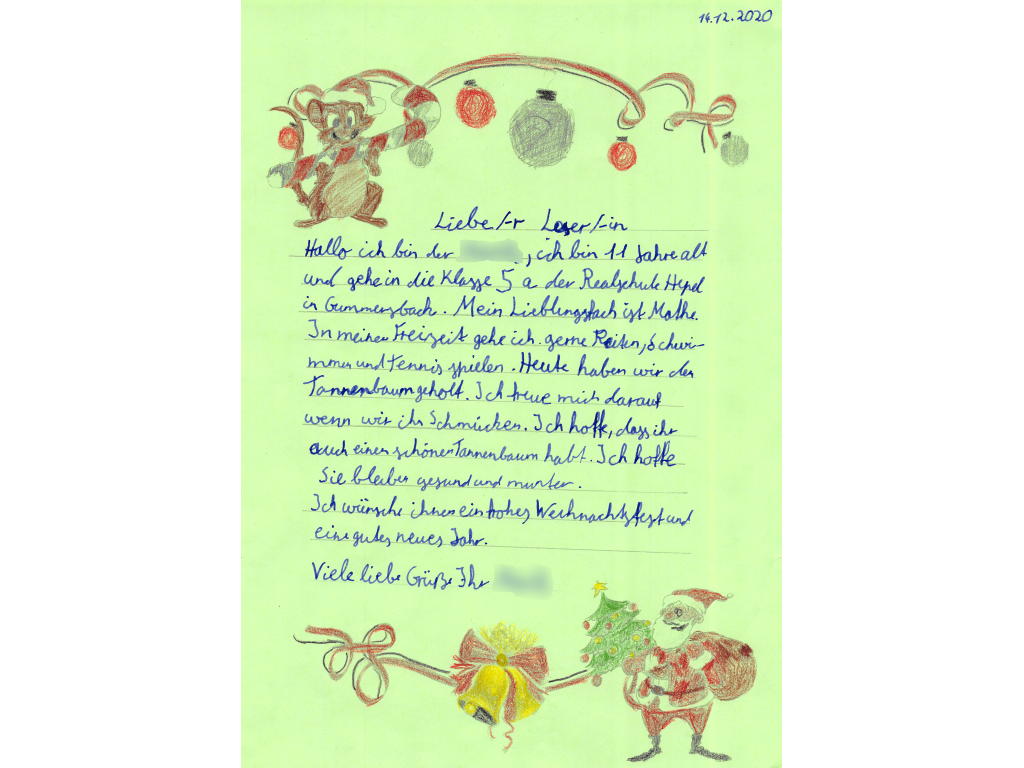 14.12.2020
Liebe/-r Leser/-in
Hallo ich bin der , ich bin 11 Jahre alt
und gehe in die Klasse 5 a der Realschule Hepel
in Gummersbach. Mein Lieblingsfach ist Mathe.
In meiner Freizeit gehe ich gerne Reiten, Schwi-
mmen und Tennis spielen. Heute haben wir den
Tannenbaum geholt. Ich freue mich darauf
wenn wir ihn Schmücken. Ich hoffe, dass ihr
auch einen schönen Tannenbaum habt. Ich hoffe
Sie bleiben gesund und munter.
Ich wünsche ihnen ein frohes Weihnachtsfest und
eine gutes neues Jahr.
Viele liebe Grüße Ihr